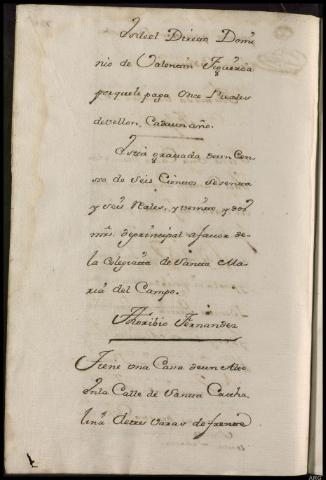 Ysdel Directo Domi
nio de Valentin Figueroa
porque le paga Once Reales
de vellon, Cada un año.
Està gravada de un Cen
so de Seis Cientos Sesenta
y seis Reales, y veinte, y dos
mrs. de principal a favor de
la Colegiata de Santa Ma
ria del Campo.
Thoribio Fernandez
Tiene una Casa de un Alto
en la Calle de Santa Catha
lina de tres varas de frente
ARG